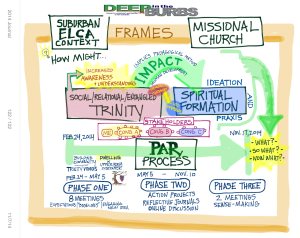 DEEP in the BURBS
SUBURBAN
ELCA
CONTEXT
FRAMES
MISSIONAL
CHURCH
HOW MIGHT...
INCREASED
AWARENESS
+ UNDERSTANDING
IMPACT
IDEATION
AND
PRAXIS
SOCIAL/RELATIONAL/ENTANGLED
TRINITY
SPIRITUAL
FORMATION
STAKE HOLDERS
FEB 24, 2014
ME
CONG A
CONG B
CONG C
NOV 17, 2014
PAR
PROCESS
-WHAT?-
-SO WHAT?-
-NOW WHAT?-
FEB 24 - MAY 5
MAY 5 - NOV 10
PHASE ONE
PHASE TWO
PHASE THREE
8 MEETINGS
ACTION PROJECTS
REFLECTIVE JOURNALS
ONLINE DISCUSSION
2 MEETINGS
SENSE-MAKING